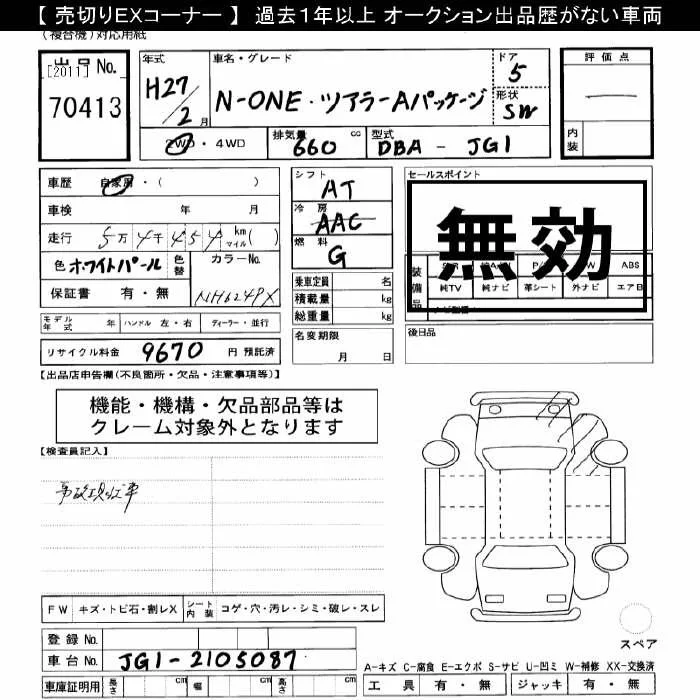 【 売切りEXコーナー 】 過去1年以上 オークション出品歴がない車両
(複合機)対応用紙
出品 No.
[2011]
70413
年式
H27/2月
車名・グレード
N-ONE・ツアラーAパッケージ
ドア
5
形状
SW
評価点
内装
2WD・4WD
排気量 660 cc
型式 DBA - JG1
車歴 自家用・( )
車検 年 月
走行 5万4千454 km マイル( )
色 ホワイトパール
色替
カラーNo.
NH624PX
保証書 有・無
シフト
AT
冷房
AAC
燃料
G
乗車定員 名
積載量 kg
総重量 kg
名変期限
月 日
セールスポイント
無効
装備品
ABS
純TV
純ナビ
革シート
外ナビ
エアB
後日品
モデル年式 年 ハンドル 左・右 ディーラー・並行
リサイクル料金 9670 円 預託済
【出品店申告欄(不良箇所・欠品・注意事項等)】
機能・機構・欠品部品等は
クレーム対象外となります
【検査員記入】
事故現状車
FW キズ・トビ石・割レX
シート内装 コゲ・穴・汚レ・シミ・破レ・スレ
登録 No.
車台 No. JG1-2105087
車庫証明用 長さ cm 幅 cm 高さ cm
スペア
A-キズ C-腐食 E-エクボ S-サビ U-凹ミ W-補修 XX-交換済
工具 有・無 ジャッキ 有・無